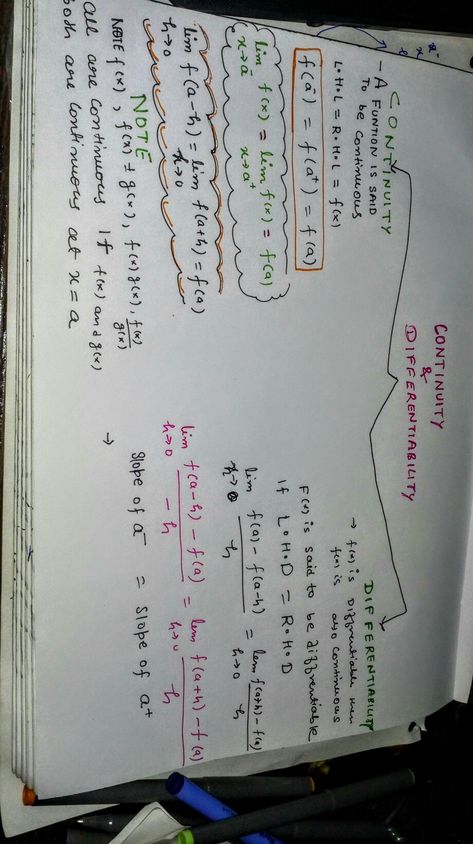 CONTINUITY
&
DIFFERENTIABILITY
CONTINUITY
- A FUNTION IS SAID
TO be continuous
L.H.L = R.H.L = f(x)
f(a⁻) = f(a⁺) = f(a)
lim f(x) = lim f(x) = f(a)
x→a⁻ x→a⁺
lim f(a-h) = lim f(a+h) = f(a)
h→0 h→0
NOTE
NOTE f(x), f(x) ± g(x), f(x) g(x), f(x)/g(x)
all are continuous If f(x) and g(x)
both are continuous at x = a
DIFFERENTIABILITY
→ f(x) is Differentiable then
f(x) is also continuous
F(x) is said to be diffrentiable
If L.H.D = R.H.D
lim f(a) - f(a-h) / h = lem f(a+h) - f(a) / h
h→0 h→0
lim f(a-h) - f(a) / -h = lem f(a+h) - f(a) / h
h→0 h→0
→ Slope of a⁻ = Slope of a⁺